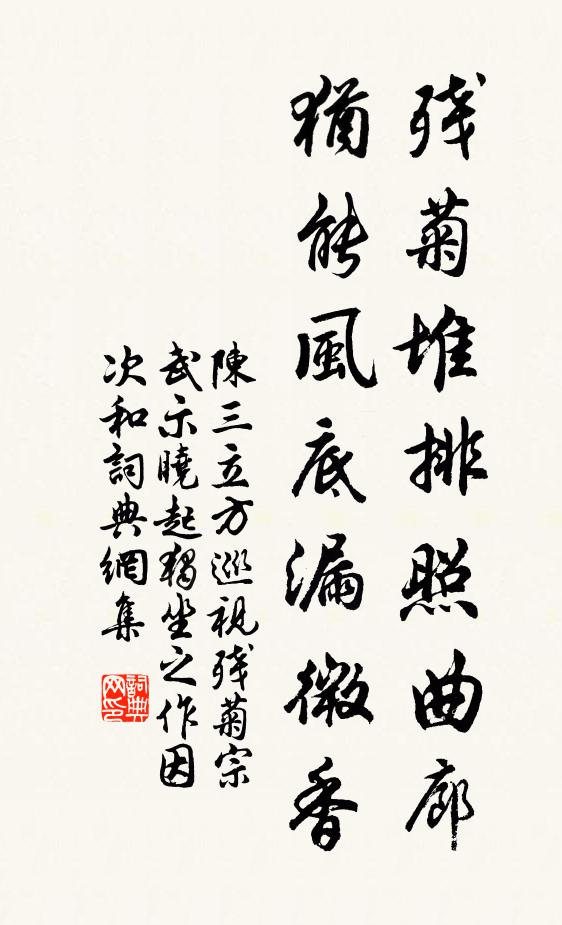 残菊堆排照曲廊
猶能風底漏微香
陳三立方巡視残菊宗
武示曉起獨坐之作因
次和詞典網集
詞典網印